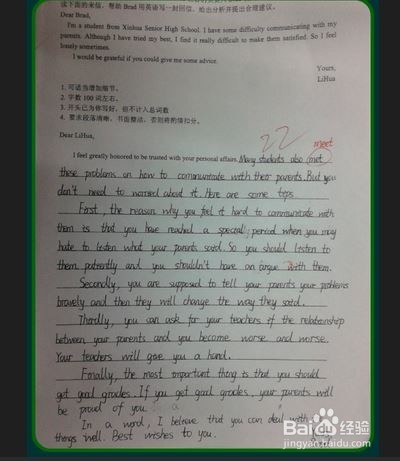 读下面的来信，帮助 Brad 用英语写一封回信，给出分析并提出合理建议。
Dear Brad,
I'm a student from Xinhua Senior High School. I have some difficulty communicating with my
parents. Although I have tried my best, I find it really difficult to make them satisfied. So I feel
lonely sometimes.
I would be grateful if you could give me some advice.
Yours,
LiHua
1. 可适当增加细节。
2. 字数 100 词左右。
3. 开头已为你写好，但不计入总词数
4. 要求段落清晰，书面整洁，否则将酌情扣分。
Dear LiHua,
22
meet
I feel greatly honored to be trusted with your personal affairs. Many students also met
these problems on how to communitate with their parents. But you
don't need to worried about it. Here are some tips.
First, the reason why you feel it hard to communitate with
them is that you have reached a special period when you may
hate to listen what your parents said. So you should listen to
them patiently and you shouldn't have an argue with them.
Secondly, you are supposed to tell your parents your problems
bravely and then they will change the way they said.
Thirdly, you can ask for your teachers if the relationship
between your parents and you become worse and worse.
Your teachers will give you a hand.
Finally, the most important thing is that you should
get goal grades. If you get goal grades, your parents will
be proud of you.
In a word, I believe that you can deal with
things well. Best wishes to you.
Bai 百度 经验
jingyan.baidu.com